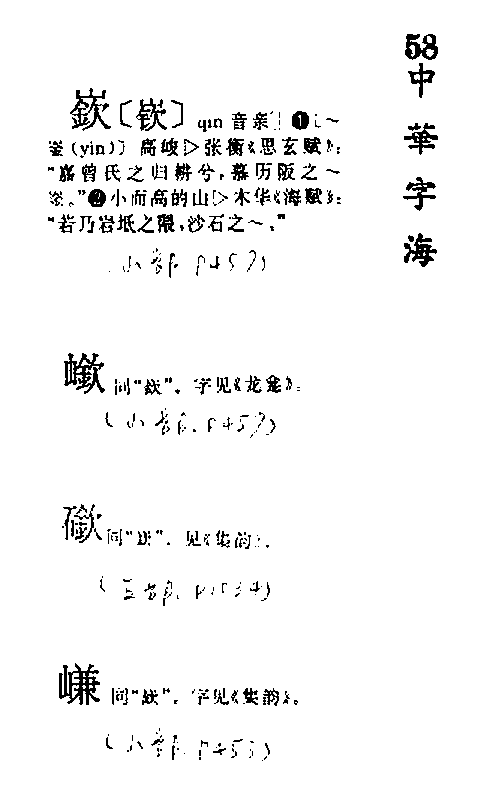 58
中華字海
嶔〔嵚〕qīn 音亲 ❶[~
崟(yín)] 高峻▷张衡《思玄赋》:
"嘉曾氏之归耕兮,慕历阪之~
崟。"❷小而高的山▷木华《海赋》:
"若乃岩坻之隈,沙石之~。"
(山部 P457)
同"嶔"。字见《龙龛》。
(山部. P457)
同"嶔"。见《集韵》。
同"嶔"。字见《集韵》。